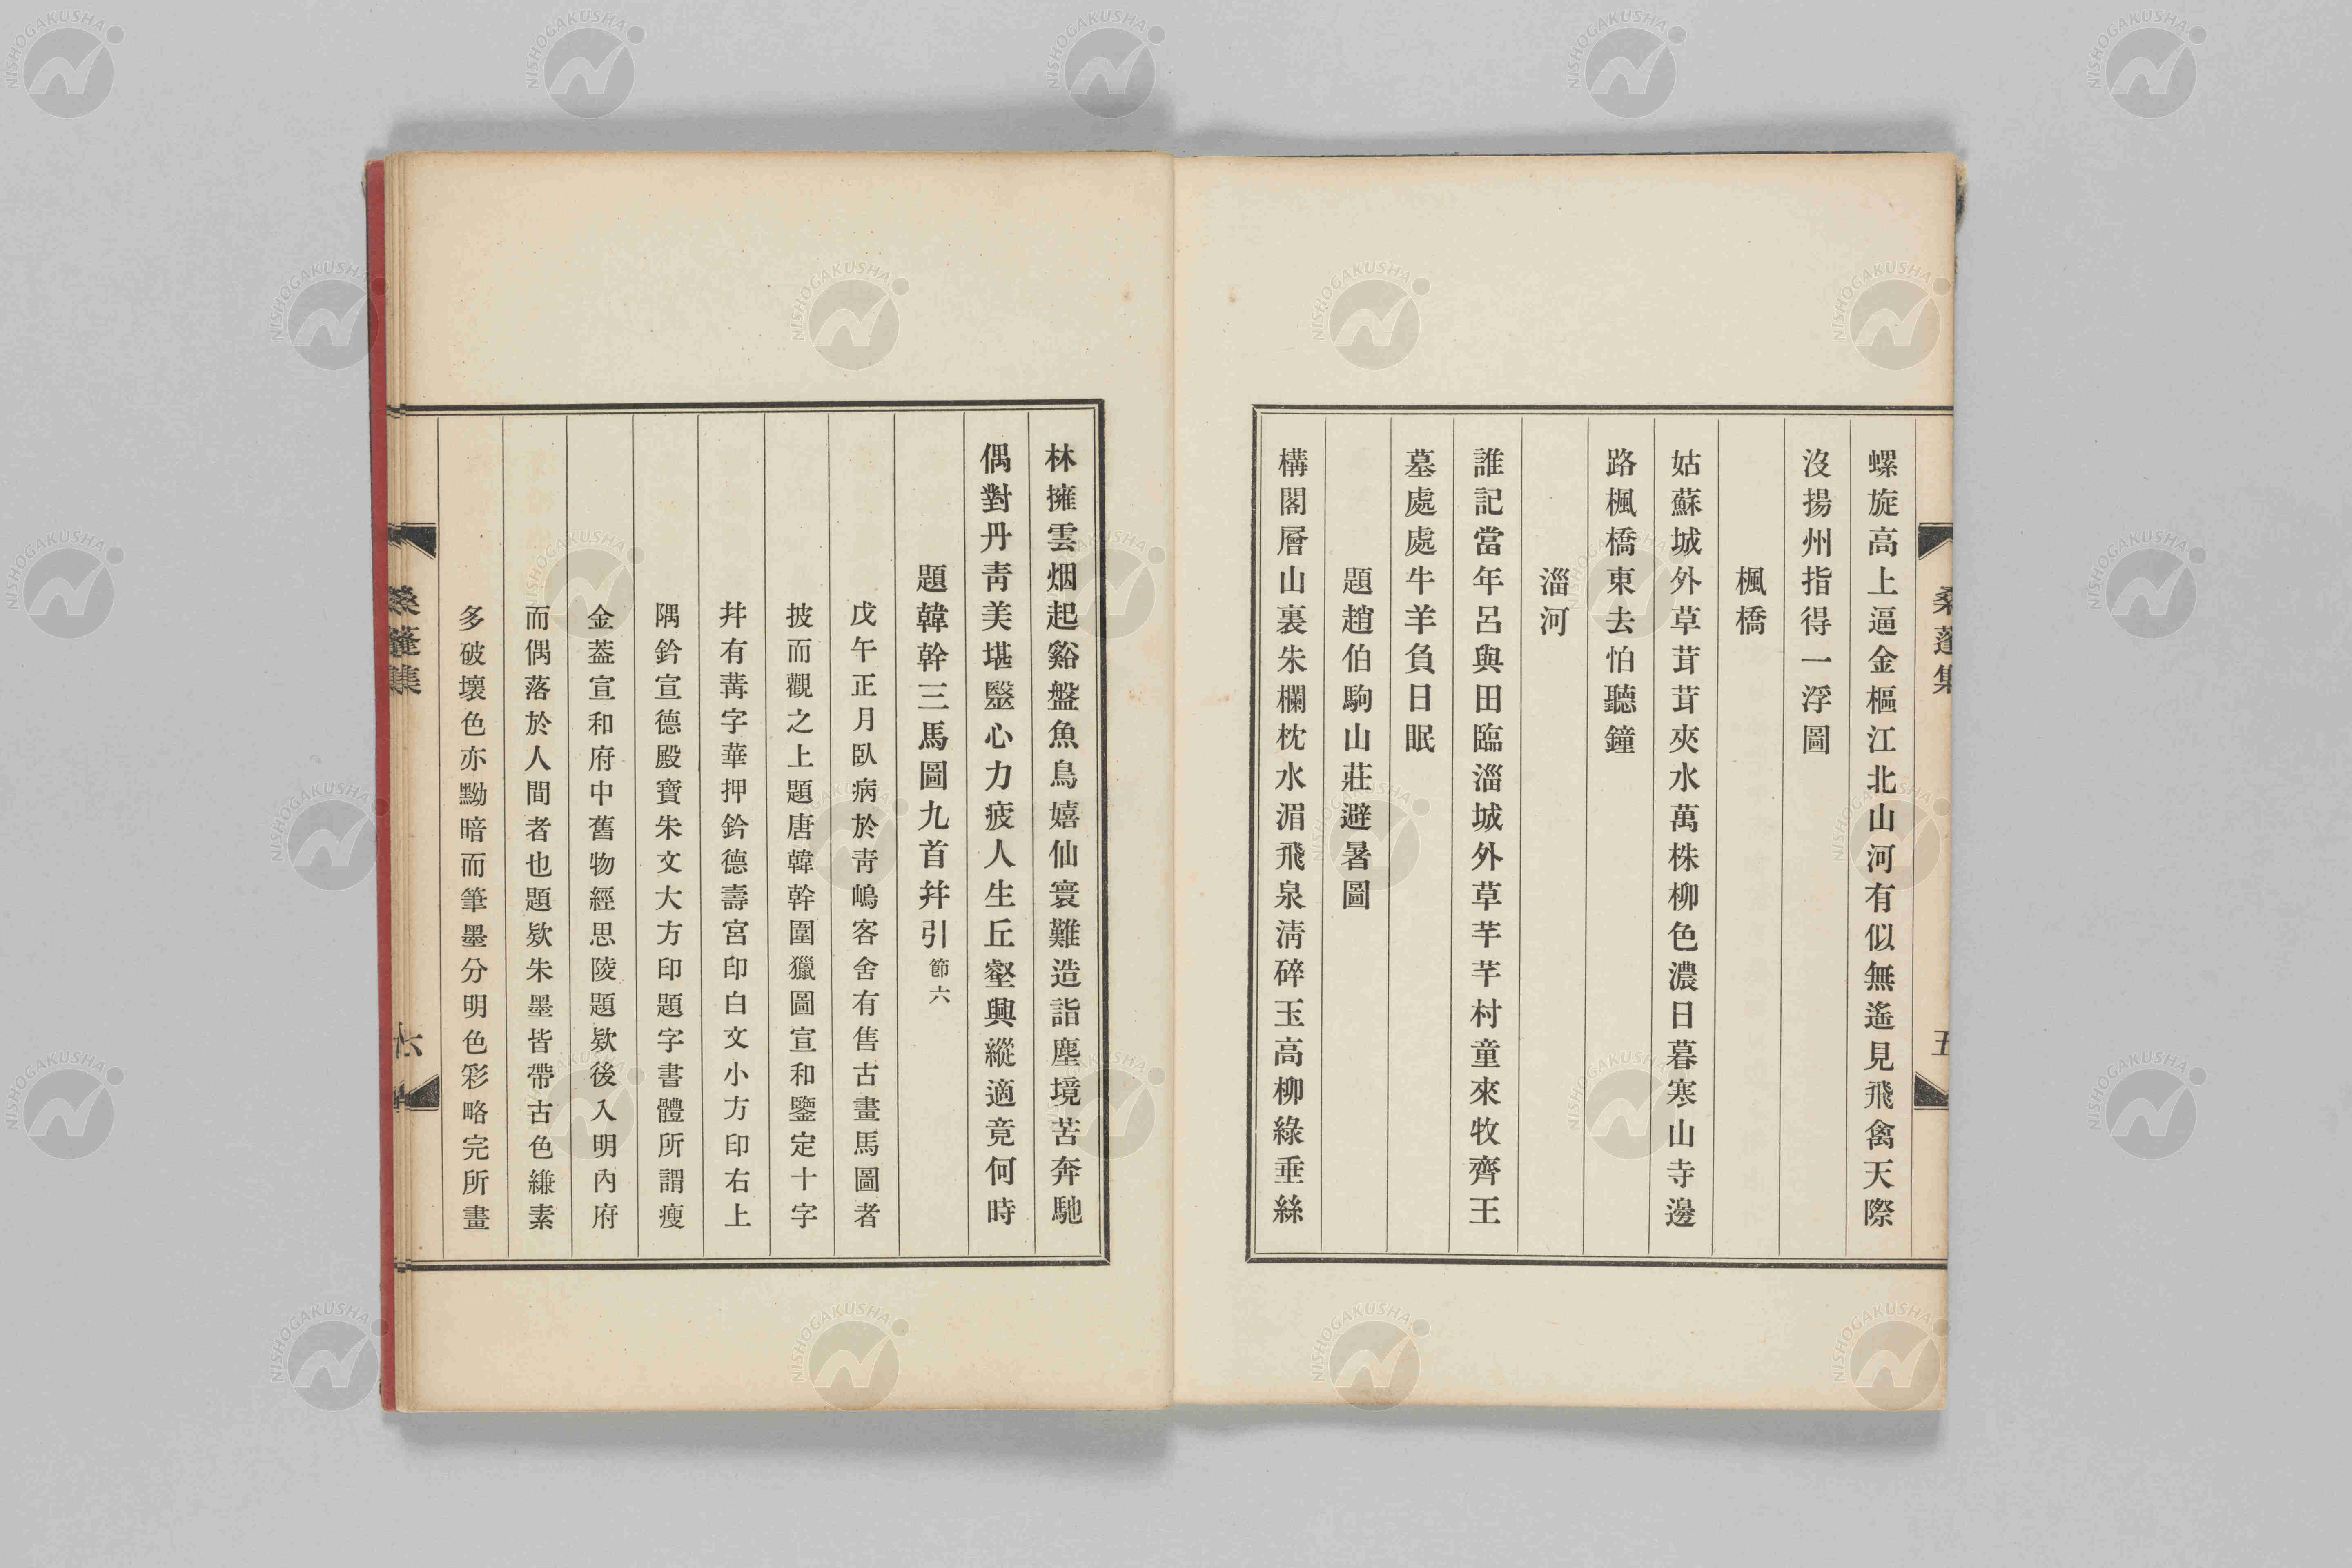 桑蓬集
五
螺旋高上逼金樞江北山河有似無遙見飛禽天際
沒揚州指得一浮圖
楓橋
姑蘇城外草茸茸夾水萬株柳色濃日暮寒山寺邊
路楓橋東去怕聽鐘
淄河
誰記當年呂與田臨淄城外草芊芊村童來牧齊王
墓處處牛羊負日眠
題趙伯駒山莊避暑圖
構閣層山裏朱欄枕水湄飛泉淸碎玉高柳綠垂絲
林擁雲烟起谿盤魚鳥嬉仙寰難造詣塵境苦奔馳
偶對丹靑美堪毉心力疲人生丘壑興縱適竟何時
題韓幹三馬圖九首幷引 節六
戊午正月臥病於靑嶋客舍有售古畫馬圖者
披而觀之上題唐韓幹圍獵圖宣和鑒定十字
幷有冓字華押鈐德壽宮印白文小方印右上
隅鈐宣德殿寶朱文大方印題字書體所謂瘦
金葢宣和府中舊物經思陵題欵後入明內府
而偶落於人間者也題欵朱墨皆帶古色縑素
多破壞色亦黝暗而筆墨分明色彩略完所畫
桑蓬集
六
NISHOGAKUSHA